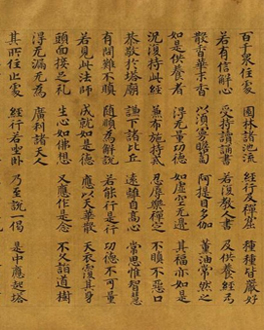 百千眾住處 園林諸流池 經行及禪窟 種種皆嚴好
若有信解心 受持讀誦書 若復教人書 及供養經卷
散香華末香 以須曼瞻蔔 阿提目多伽 薰油常然之
如是供養者 得无量功德 如虛空无邊 其福亦如是
況復持此經 兼布施持戒 忍辱樂禪定 不瞋不惡口
恭敬於塔廟 謙下諸比丘 遠離自高心 常思惟智慧
有問難不瞋 隨順為解說 若能行是行 功德不可量
若見此法師 成就如是德 應以天華散 天衣覆其身
頭面接足礼 生心如佛想 又應作是念 不久詣道樹
得无漏无為 廣利諸天人
其所住止處 經行若坐卧 乃至說一偈 是中應起塔